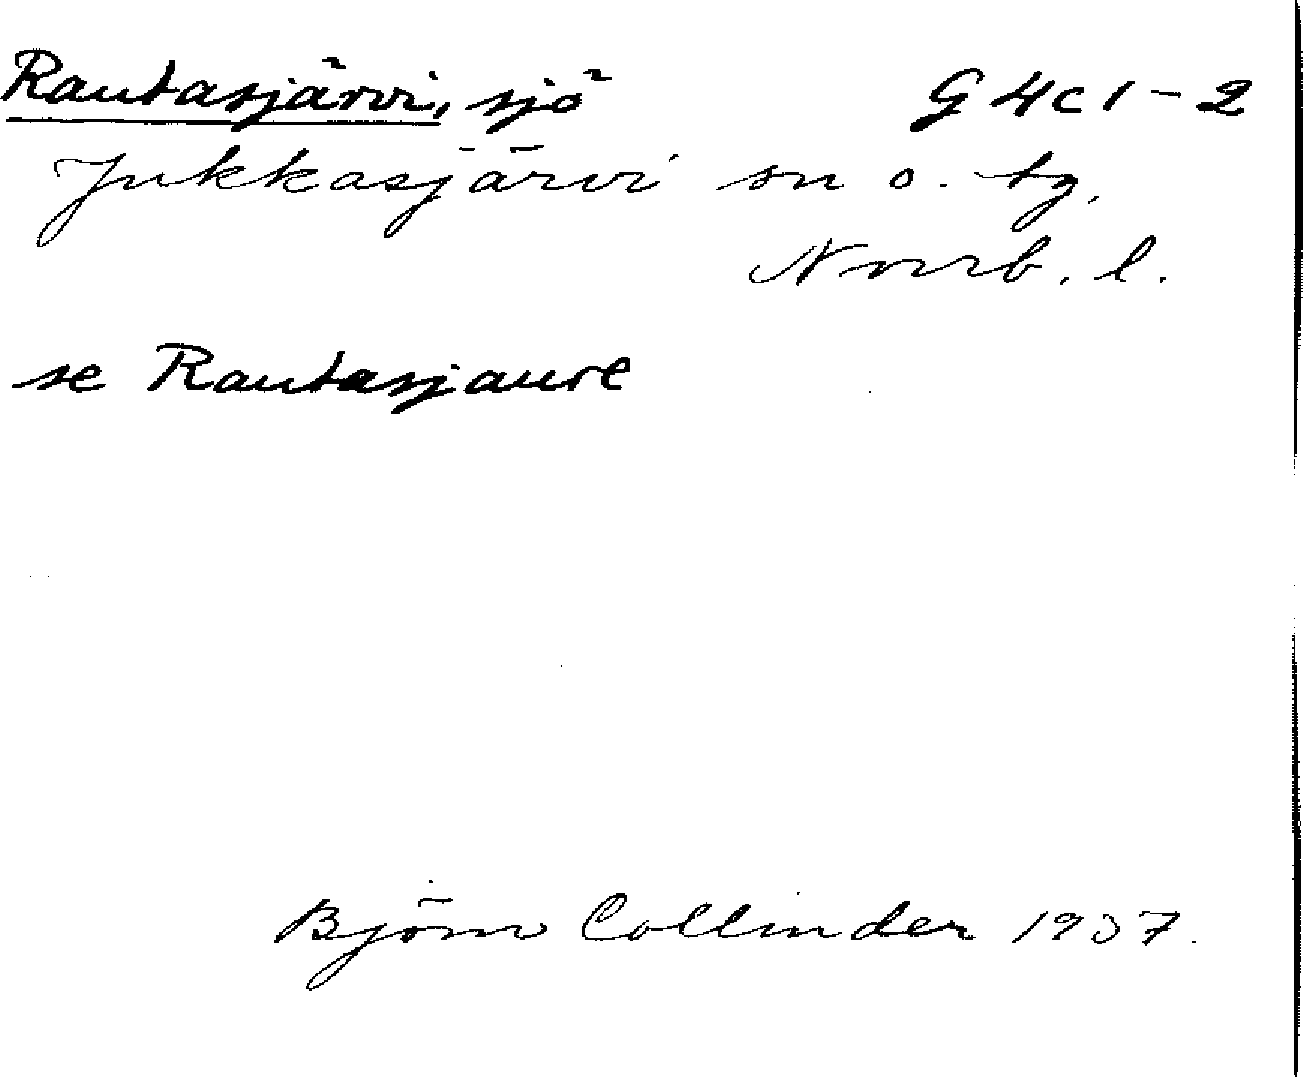 Rautasjärvi, sjö G4c1-2
Jukkasjärvi sn o. tg,
Norrb. l.
se Rautasjaure
Björn Collinder 1937.